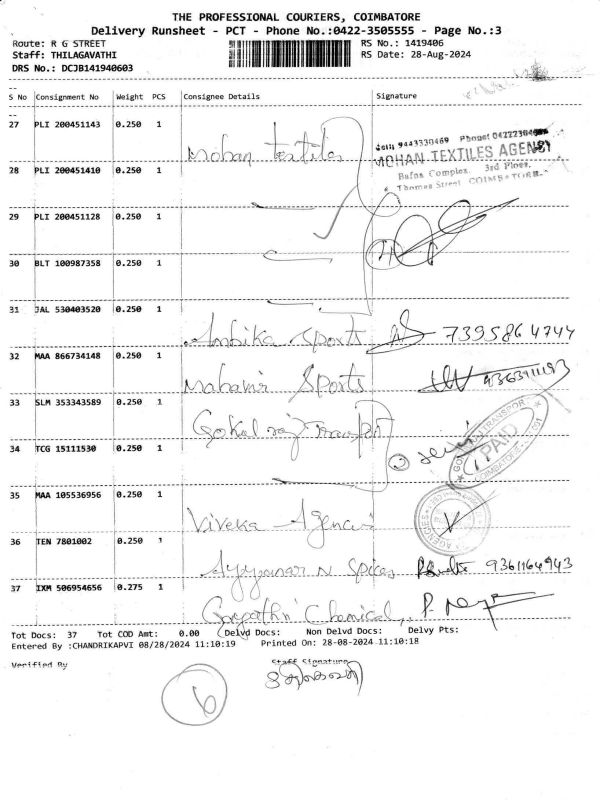 THE PROFESSIONAL COURIERS, COIMBATORE
Delivery Runsheet - PCT - Phone No.:0422-3505555 - Page No.:3
Route: R G STREET RS No.: 1419406
Staff: THILAGAVATHI RS Date: 28-Aug-2024
DRS No.: DCJB141940603
--
S No Consignment No Weight PCS Consignee Details Signature
--
27 PLI 200451143 0.250 1 Mohan textiles
Cell: 9443330469 Phone: 0422230
MOHAN TEXTILES AGENCY
Bafna Complex, 3rd Floor,
Thomas Street, COIMBATORE
28 PLI 200451410 0.250 1
29 PLI 200451128 0.250 1
30 BLT 100987358 0.250 1
31 JAL 530403520 0.250 1 Ambika Sports 7395864744
32 MAA 866734148 0.250 1 Mahavir Sports
33 SLM 353343589 0.250 1 Gokul raj Transport
34 TCG 15111530 0.250 1
PAID
35 MAA 105536956 0.250 1 Viveka Agencies
36 TEN 7801002 0.250 1 Ayyanar N Spices 9361164943
37 IXM 506954656 0.275 1 Ganpathi Chemical
Tot Docs: 37 Tot COD Amt: 0.00 Delvd Docs: Non Delvd Docs: Delvy Pts:
Entered By :CHANDRIKAPVI 08/28/2024 11:10:19 Printed On: 28-08-2024 11:10:18
Verified By Staff Signature
6